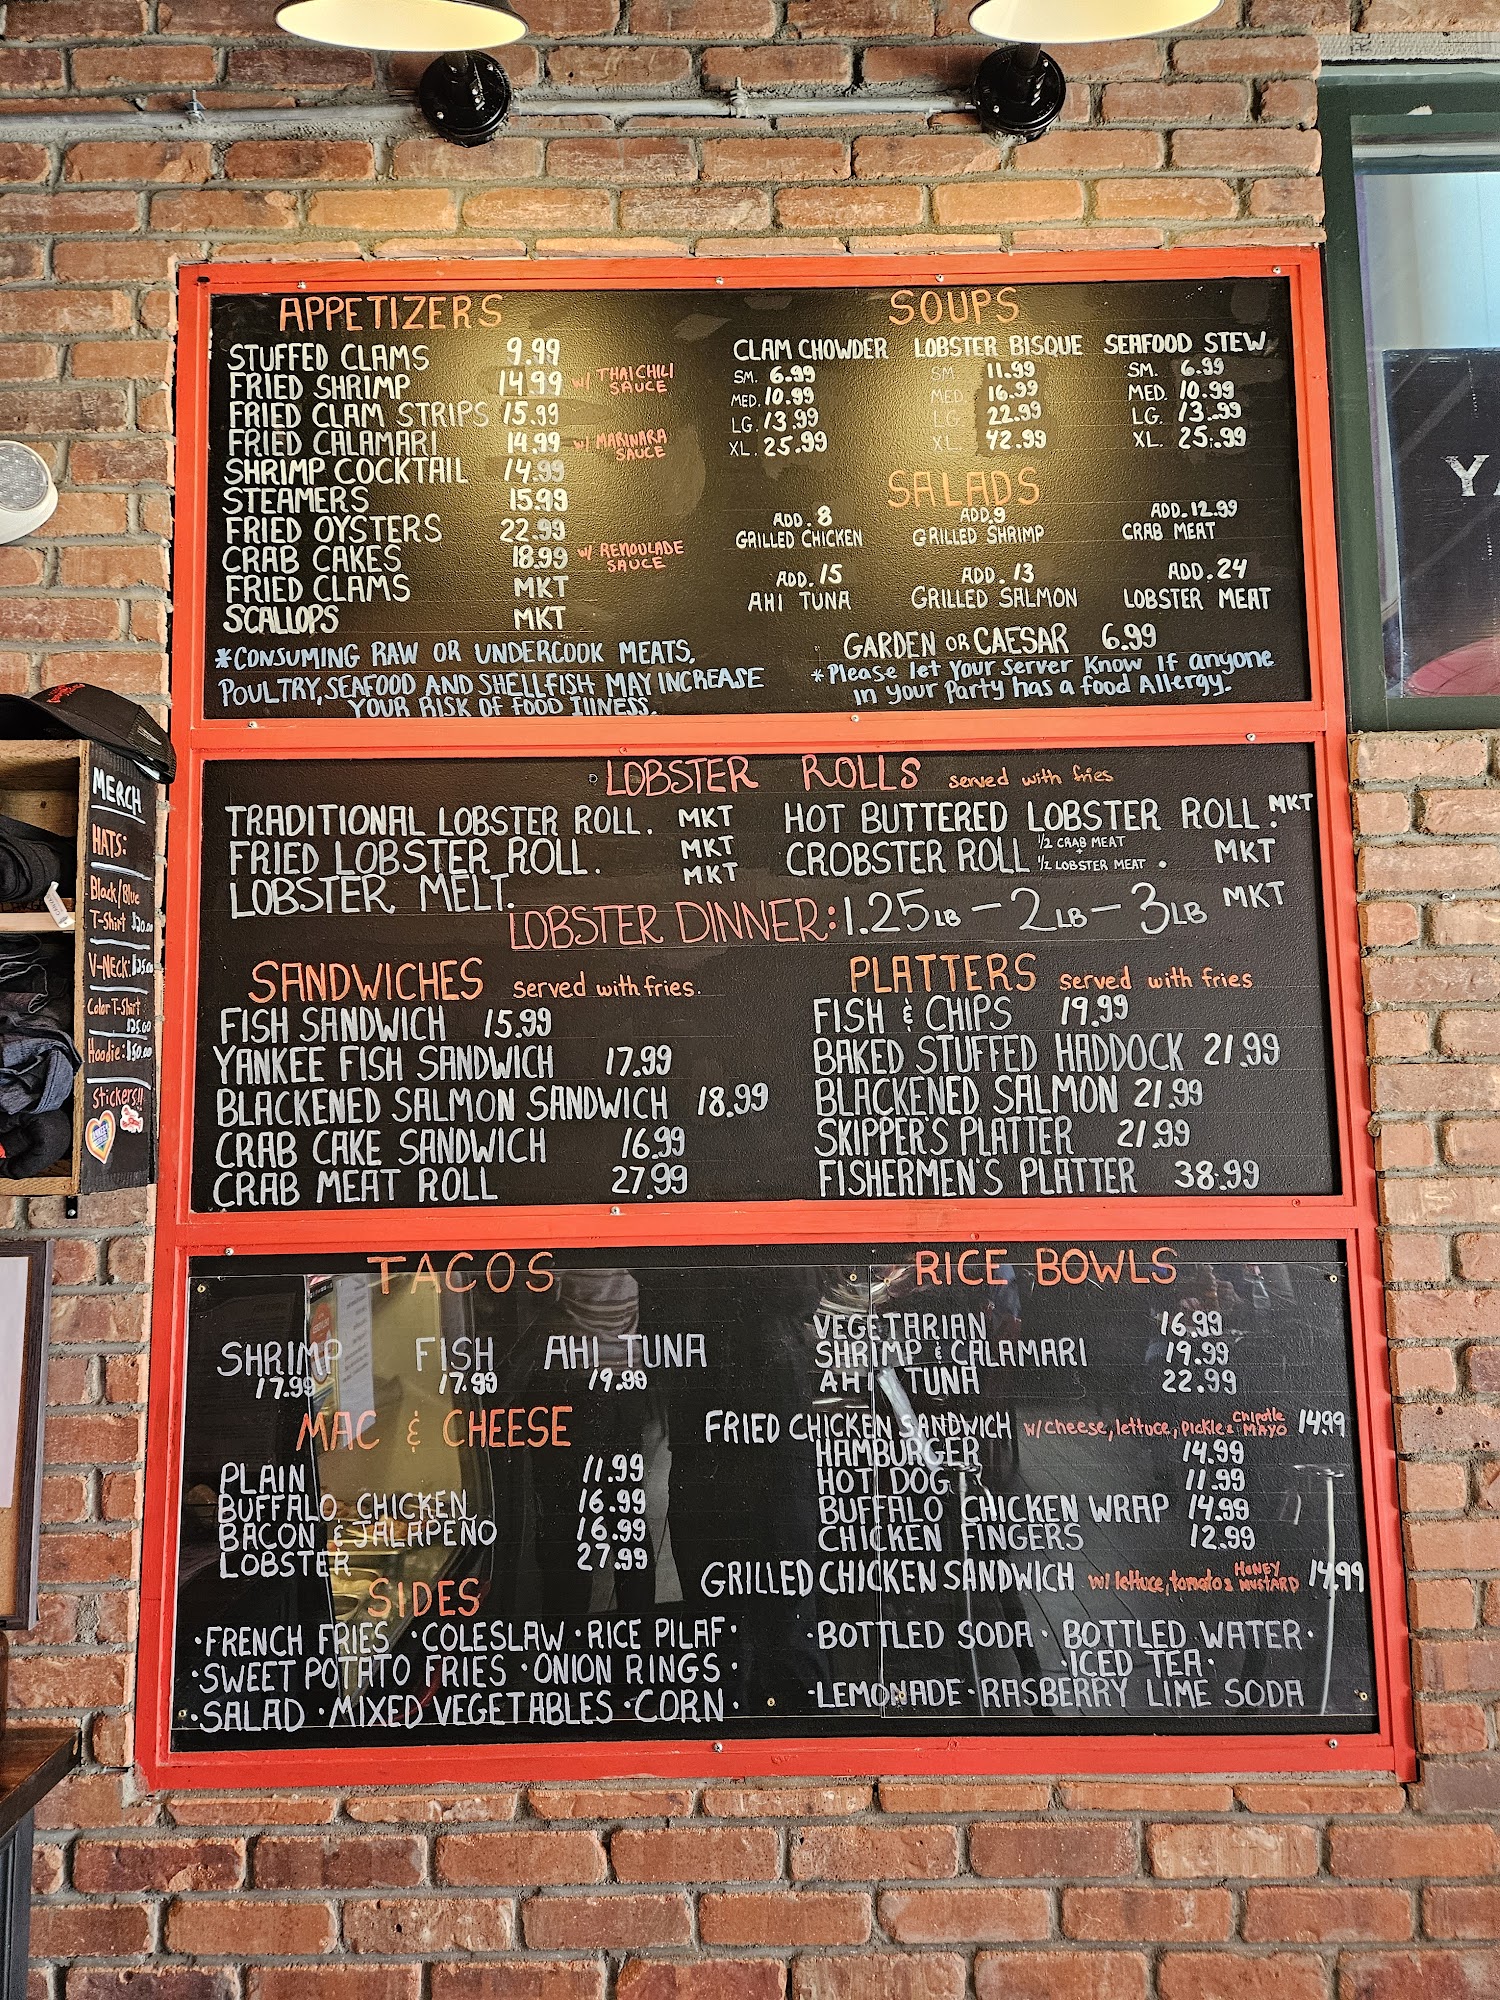 APPETIZERS
STUFFED CLAMS 9.99
FRIED SHRIMP 14.99 w/ THAI CHILI SAUCE
FRIED CLAM STRIPS 15.99
FRIED CALAMARI 14.99 w/ MARINARA SAUCE
SHRIMP COCKTAIL 14.99
STEAMERS 15.99
FRIED OYSTERS 22.99
CRAB CAKES 18.99 w/ REMOULADE SAUCE
FRIED CLAMS MKT
SCALLOPS MKT
*CONSUMING RAW OR UNDERCOOK MEATS,
POULTRY, SEAFOOD AND SHELLFISH MAY INCREASE
YOUR RISK OF FOOD IllNESS.
SOUPS
CLAM CHOWDER LOBSTER BISQUE SEAFOOD STEW
SM. 6.99 SM. 11.99 SM. 6.99
MED. 10.99 MED. 16.99 MED. 10.99
LG. 13.99 LG. 22.99 LG. 13.99
XL. 25.99 XL. 42.99 XL. 25.99
SALADS
ADD. 8 ADD. 9 ADD. 12.99
GRILLED CHICKEN GRILLED SHRIMP CRAB MEAT
ADD. 15 ADD. 13 ADD. 24
AHI TUNA GRILLED SALMON LOBSTER MEAT
GARDEN OR CAESAR 6.99
*Please let Your Server Know If anyone
in your Party has a food Allergy.
LOBSTER ROLLS served with fries
TRADITIONAL LOBSTER ROLL. MKT
FRIED LOBSTER ROLL. MKT
LOBSTER MELT. MKT
HOT BUTTERED LOBSTER ROLL. MKT
CROBSTER ROLL 1/2 CRAB MEAT + 1/2 LOBSTER MEAT. MKT
LOBSTER DINNER: 1.25LB - 2LB - 3LB MKT
SANDWICHES served with fries.
FISH SANDWICH 15.99
YANKEE FISH SANDWICH 17.99
BLACKENED SALMON SANDWICH 18.99
CRAB CAKE SANDWICH 16.99
CRAB MEAT ROLL 27.99
PLATTERS served with fries
FISH & CHIPS 19.99
BAKED STUFFED HADDOCK 21.99
BLACKENED SALMON 21.99
SKIPPER'S PLATTER 21.99
FISHERMEN'S PLATTER 38.99
TACOS
SHRIMP FISH AHI TUNA
17.99 17.99 19.99
MAC & CHEESE
PLAIN 11.99
BUFFALO CHICKEN 16.99
BACON & JALAPEÑO 16.99
LOBSTER 27.99
SIDES
·FRENCH FRIES ·COLESLAW ·RICE PILAF·
·SWEET POTATO FRIES ·ONION RINGS·
·SALAD ·MIXED VEGETABLES ·CORN·
RICE BOWLS
VEGETARIAN 16.99
SHRIMP & CALAMARI 19.99
AHI TUNA 22.99
FRIED CHICKEN SANDWICH w/ cheese, lettuce, pickle & Chipotle MAYO 14.99
HAMBURGER 14.99
HOT DOG 11.99
BUFFALO CHICKEN WRAP 14.99
CHICKEN FINGERS 12.99
GRILLED CHICKEN SANDWICH w/ lettuce, tomato & HONEY MUSTARD 14.99
·BOTTLED SODA· BOTTLED WATER·
·ICED TEA·
·LEMONADE·RASBERRY LIME SODA
MERCH
HATS:
Black/Blue
T-Shirt $20.00
V-NECK: $25.00
Color T-Shirt:
$25.00
Hoodie: $50.00
Stickers!!